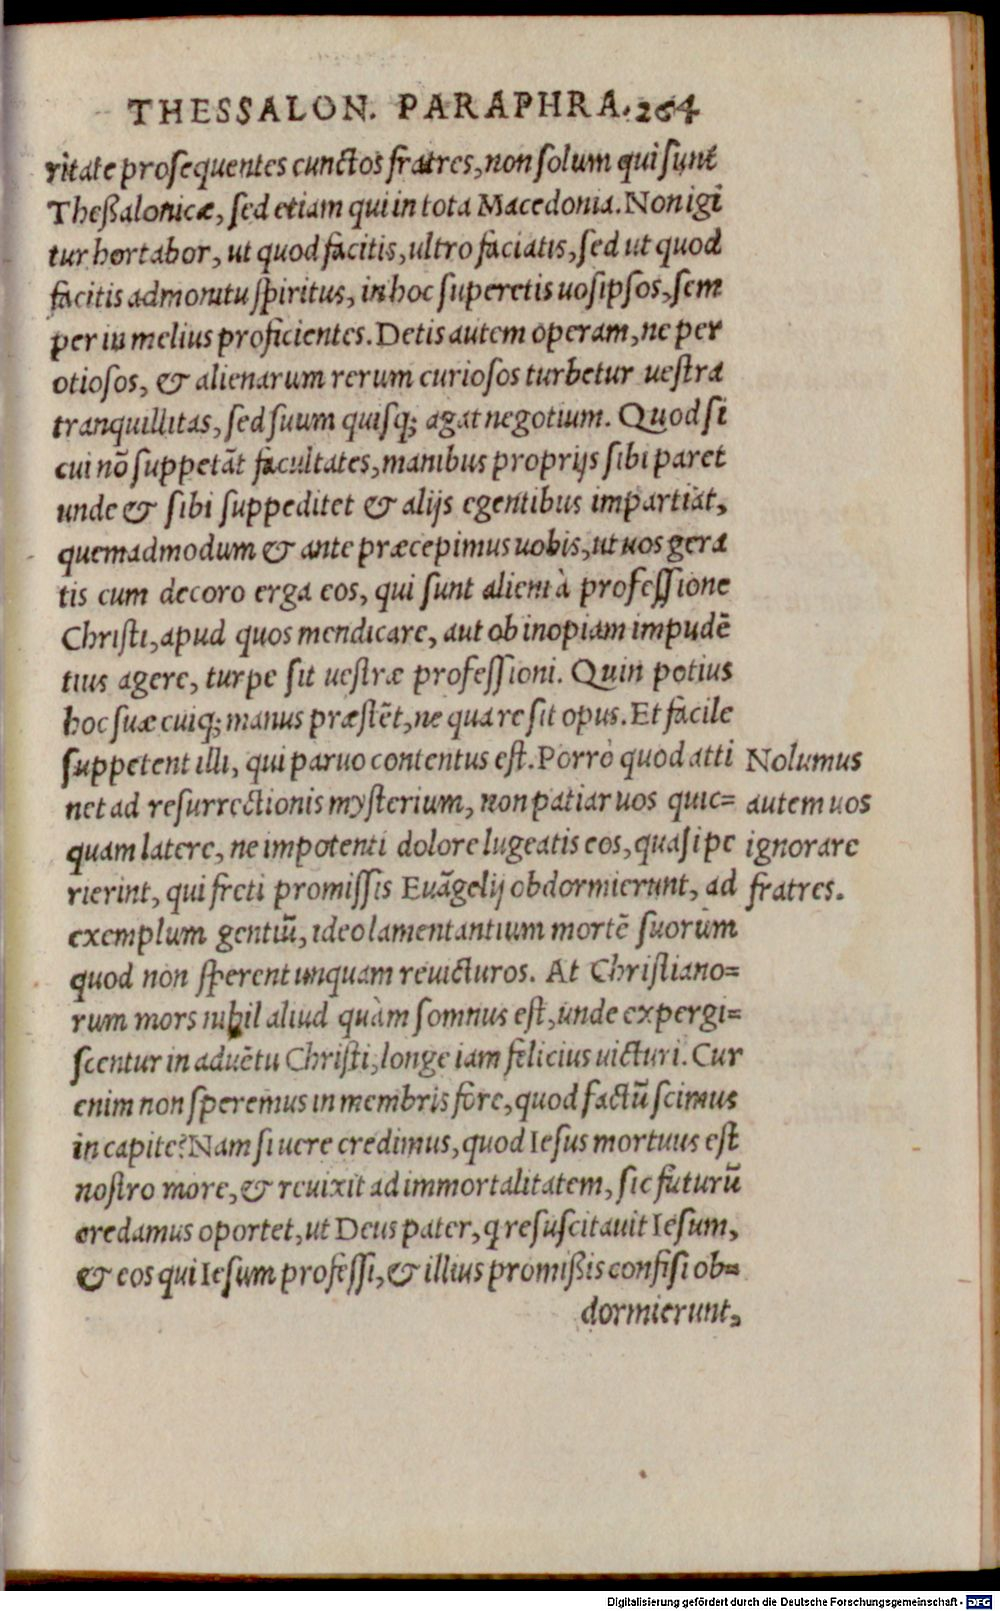 THESSALON. PARAPHRA. 264
ritate prosequentes cunctos fratres, non solum qui sunt
Theßalonicæ, sed etiam qui in tota Macedonia. Non igi
tur hortabor, ut quod facitis, ultro faciatis, sed ut quod
facitis admonitu spiritus, in hoc superetis uosipsos, sem
per in melius proficientes. Detis autem operam, ne per
otiosos, & alienarum rerum curiosos turbetur uestra
tranquillitas, sed suum quisq; agat negotium. Quod si
cui nõ suppetãt facultates, manibus proprijs sibi paret
unde & sibi suppeditet & alijs egentibus impartiat,
quemadmodum & ante præcepimus uobis, ut uos gera
tis cum decoro erga eos, qui sunt alieni à professione
Christi, apud quos mendicare, aut ob inopiam impudẽ
tius agere, turpe sit uestræ professioni. Quin potius
hoc suæ cuiq; manus præstẽt, ne qua re sit opus. Et facile
suppetent illi, qui paruo contentus est. Porrò quod atti
net ad resurrectionis mysterium, non patiar uos quic=
quam latere, ne impotenti dolore lugeatis eos, quasi pe
rierint, qui freti promissis Euãgelij obdormierunt, ad
exemplum gentiũ, ideo lamentantium mortẽ suorum
quod non sperent unquam reuicturos. At Christiano=
rum mors nihil aliud quàm somnus est, unde expergi=
scentur in aduẽtu Christi, longe iam felicius uicturi. Cur
enim non speremus in membris fore, quod factũ scimus
in capite? Nam si uere credimus, quod Iesus mortuus est
nostro more, & reuixit ad immortalitatem, sic futurũ
credamus oportet, ut Deus pater, q resuscitauit Iesum,
& eos qui Iesum professi, & illius promißis confisi ob=
dormierunt,
Nolumus
autem uos
ignorare
fratres.
Digitalisierung gefördert durch die Deutsche Forschungsgemeinschaft - DFG